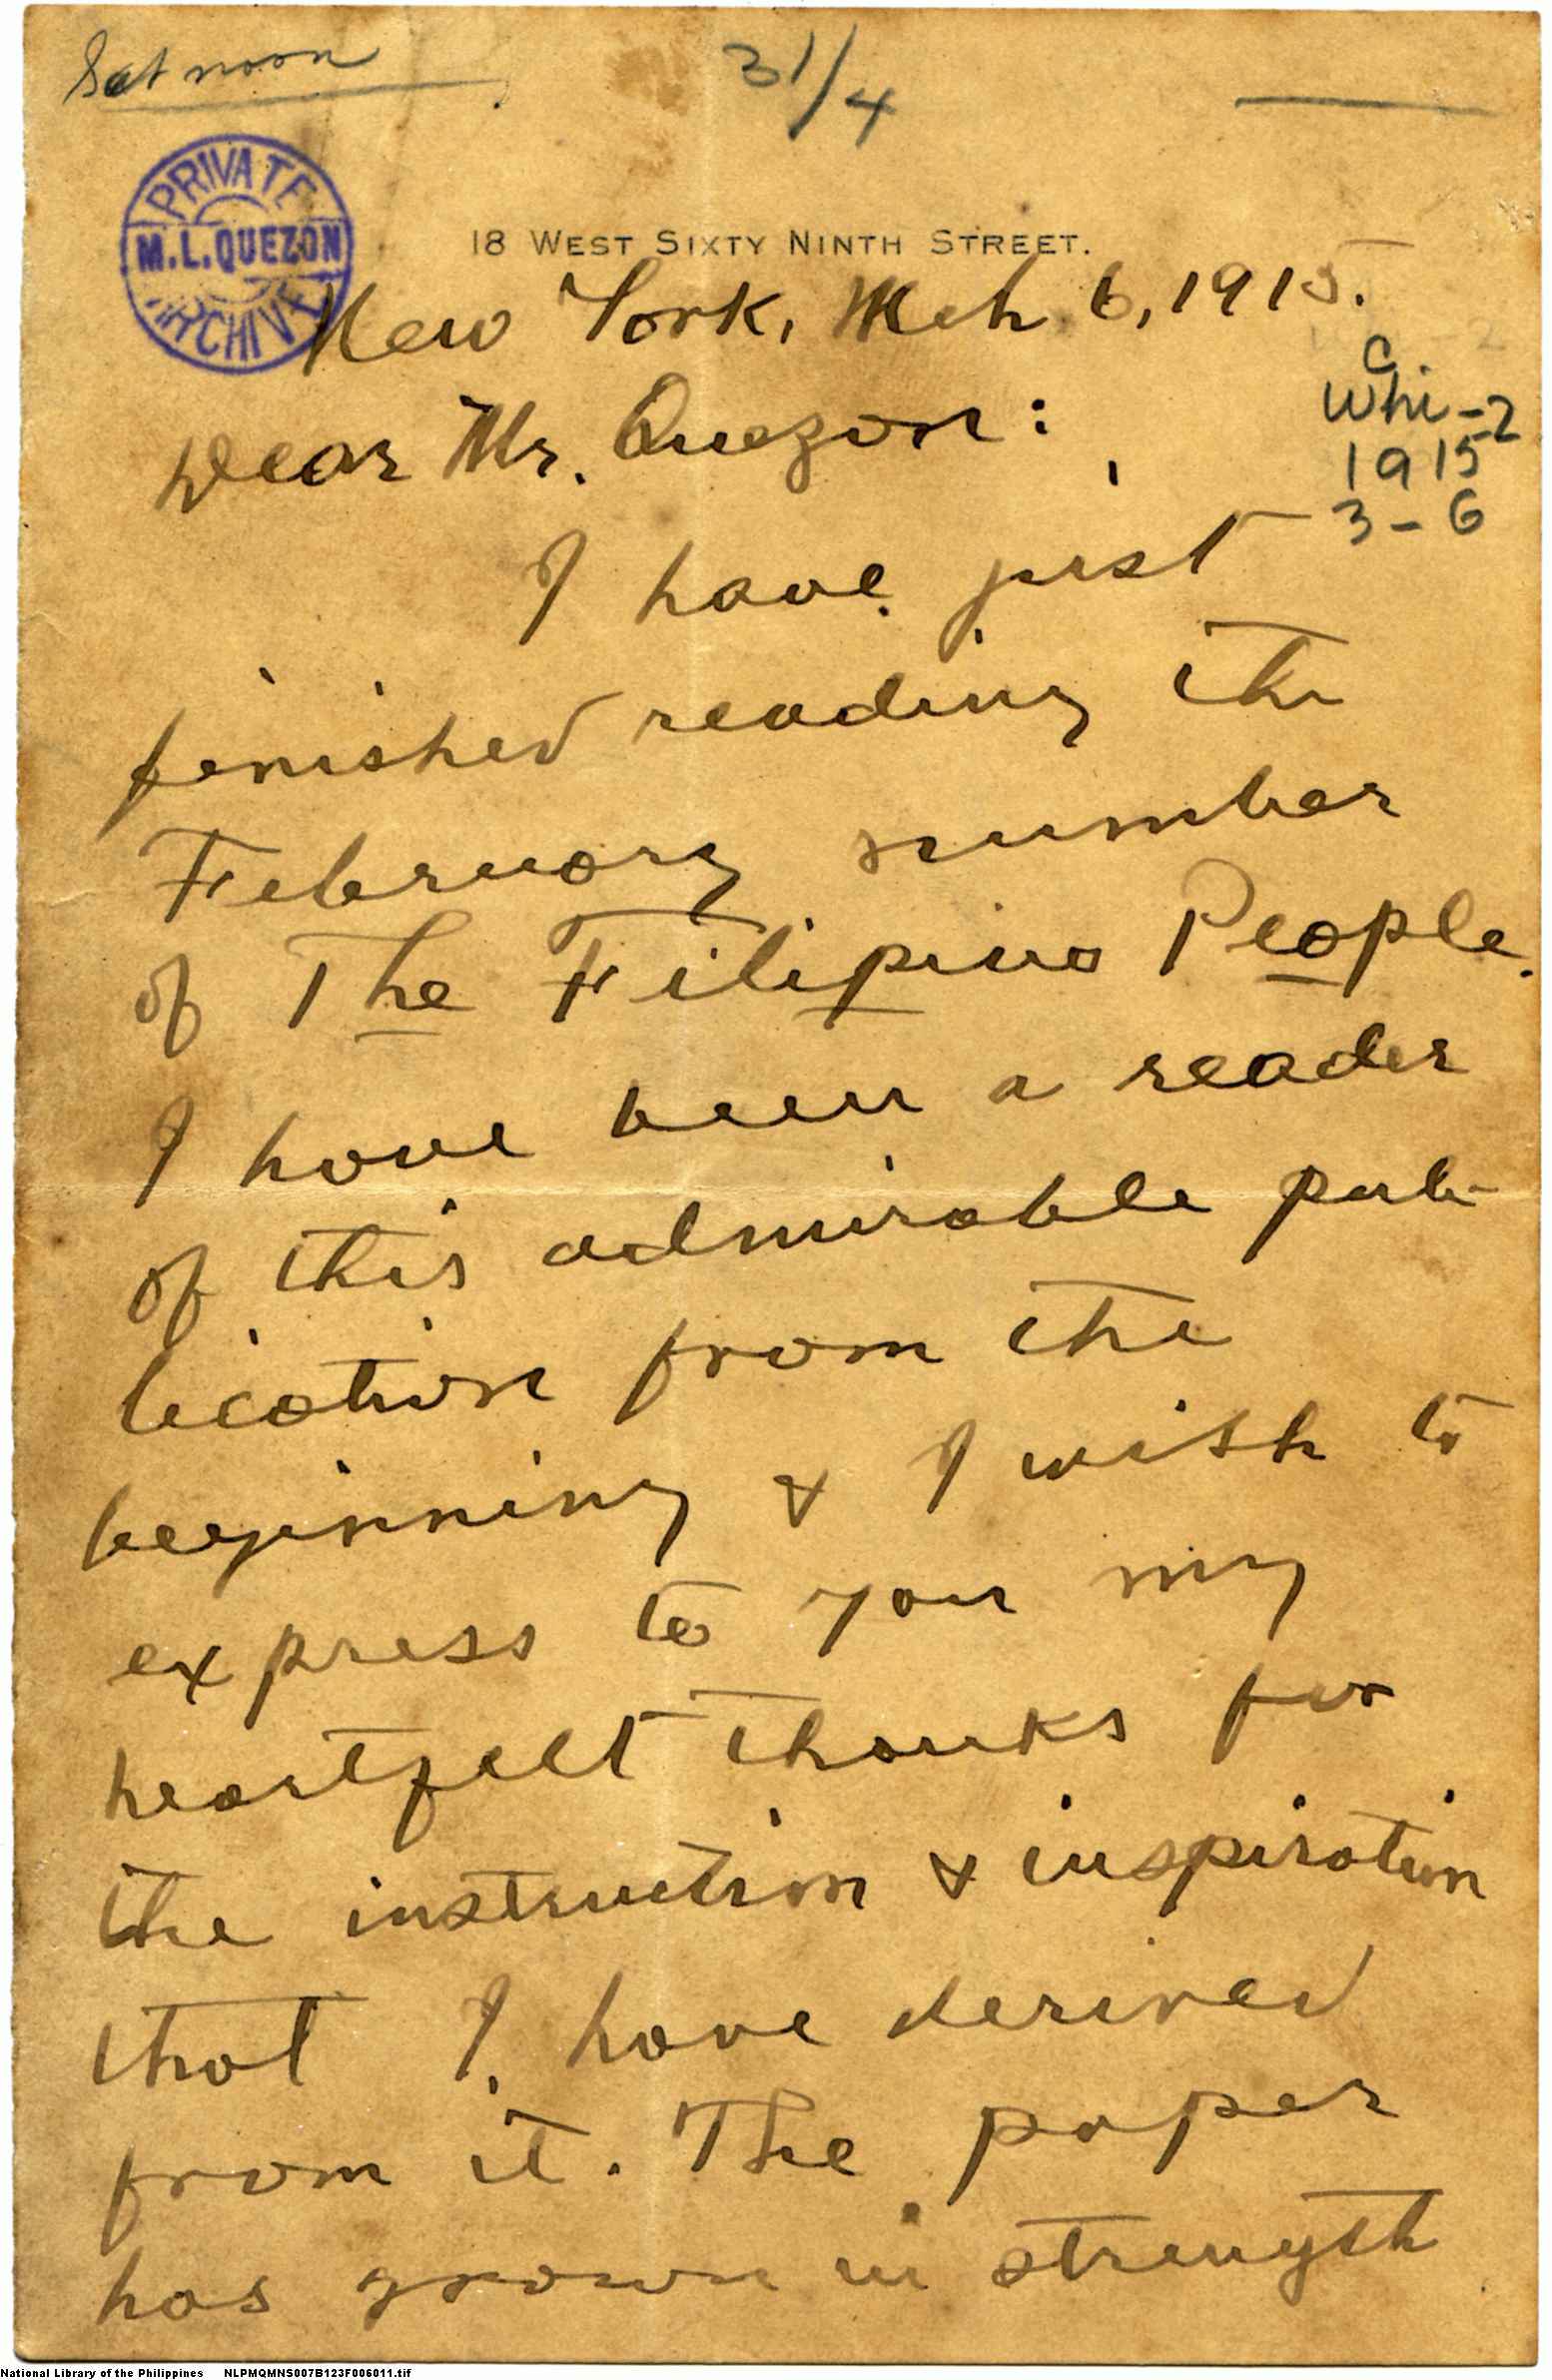 Sat noon
31/4
PRIVATE
M.L.QUEZON
ARCHIVE
18 WEST SIXTY NINTH STREET.
New York, Mch 6, 1915.
C
Whi-2
1915
3-6
Dear Mr. Quezon:
I have just
finished reading the
February number
of The Filipino People.
I have been a reader
of this admirable pub-
lication from the
beginning & I wish to
express to you my
heartfelt thanks for
the instruction & inspiration
that I have derived
from it. The paper
has grown in strength
National Library of the Philippines NLPMQMNS007B123F006011.tif